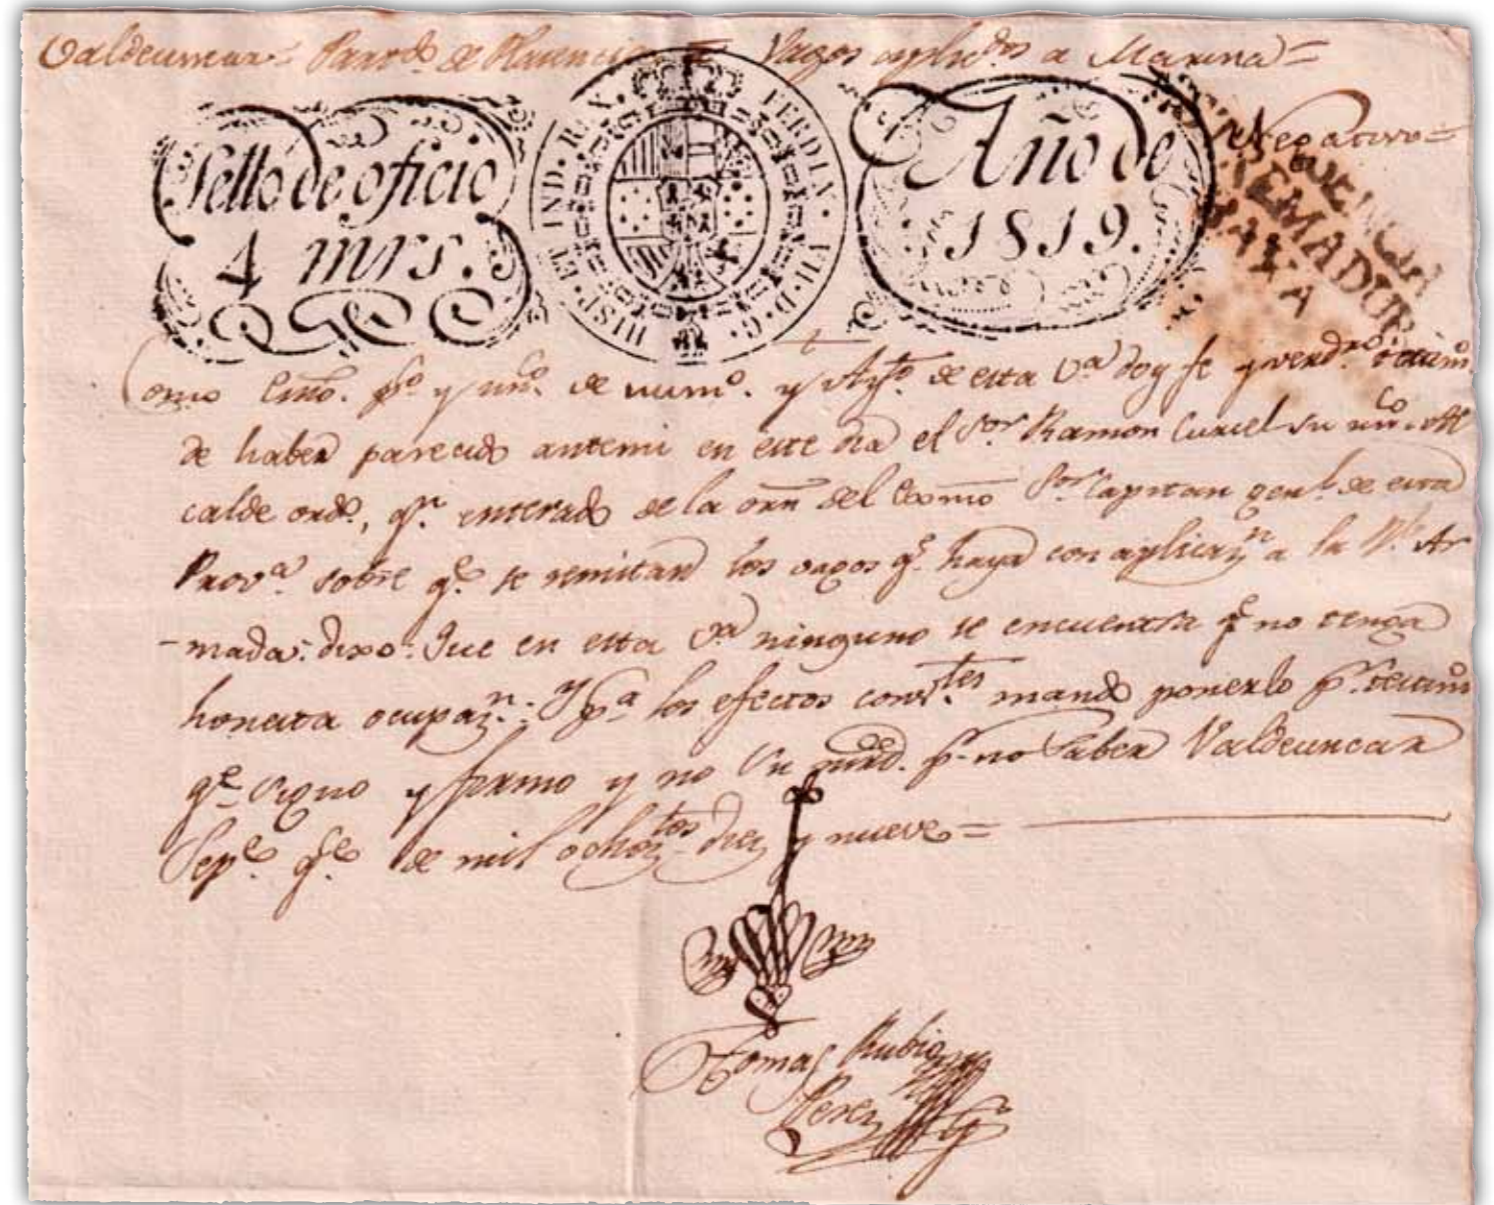 Valdeuncar = Part.do de Plasencia = Vagos aplic.dos a Marina =
Negativo =
Sello de oficio
4 mrs.
HISP. ET IND. REX. FERDIN. VII. D. G.
Año de
1819.
EXTREMADURA
BAXA
Como Esno. p.co y un.co de num.o y Ay.to de esta V.a doy fe y verd.ro testim.o
de haber parecido antemi en este dia el S.or Ramon Curiel su un.co Al
calde ord.o, q.n enterado de la orn del Exmo S.or Capitan gen.l de esta
Prov.a sobre q.e se remitan los vagos q.e haya con aplicaz.n a la R.l Ar
-mada: dixo: Que en esta V.a ninguno se encuentra q.e no tenga
honesta ocupaz.n: Y p.a los efectos conv.tes mando ponerlo p.r testim.o
q.e signo y firmo y no Su mrd. p.r no saber Valdeuncar
Sep.e de mil ochoz.tos diez y nueve =
Tomas Rubio
Perez